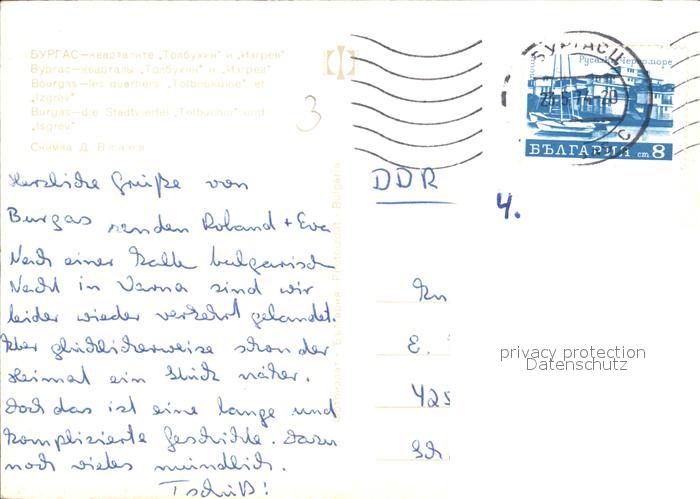 БУРГАС—кварталите „Толбухин" и „Изгрев"
Бургас—кварталы „Толбухин" и „Изгрев"
Bourgas—les quartiers „Tolboukhine" et
„Izgrev"
Burgas—die Stadtviertel „Tolbuchin" und
„Isgrev"
Снимка Д. Вичев
3
Herzliche Grüße von
Burgas senden Roland + Eva
Nach einer kalten bulgarischen
Nacht in Varna sind wir
leider wieder verkehrt gelandet.
Aber glücklicherweise schon der
Heimat ein Stück näher.
Doch das ist eine lange und
komplizierte Geschichte. Dazu
noch vieles mündlich.
Tschüß!
БУРГАС
Русалка Черно море
БЪЛГАРИЯ ст 8
DDR
4.
E.
425
Sch
privacy protection
Datenschutz